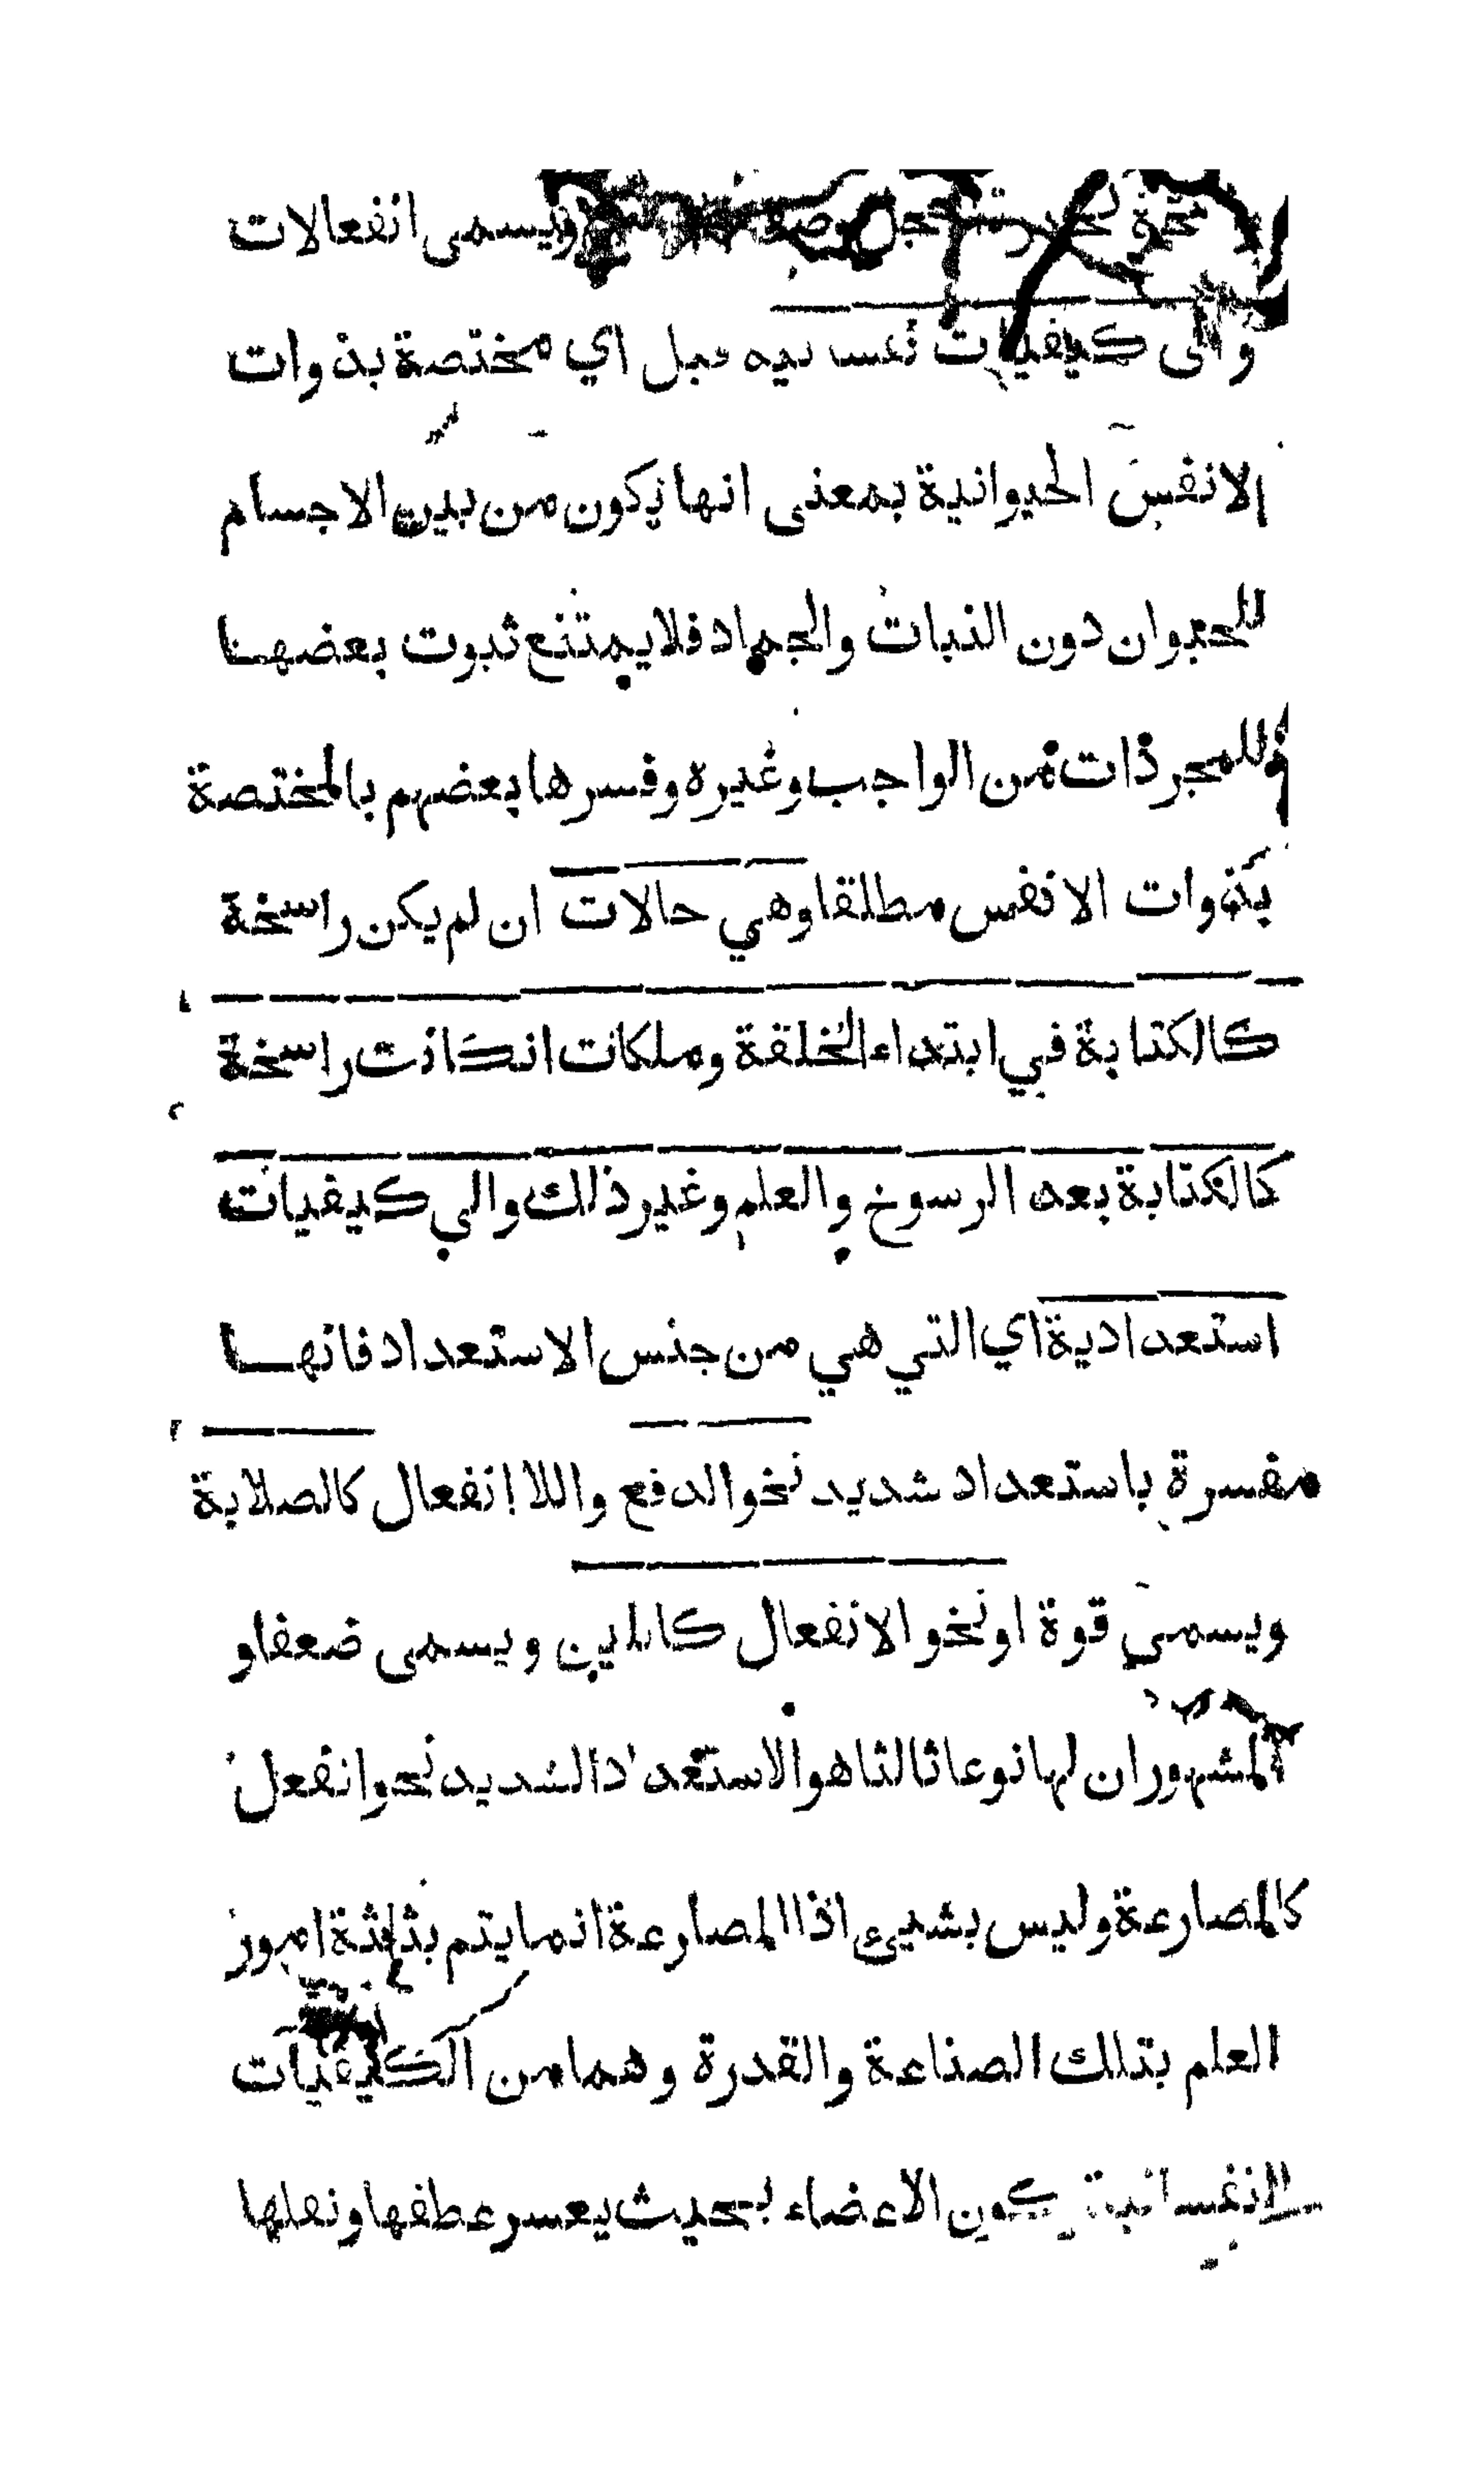 ويسمى انفعالات
والى كيفيات نفسانيه قيل اي مختصة بذوات
الانفس الحيوانية بمعنى انها يكون من بين الاجسام
للحيوان دون النبات والجماد فلا يمتنع ثبوت بعضها
للمجردات من الواجب وغيره وفسرها بعضهم بالمختصة
بذوات الانفس مطلقا وهي حالات ان لم يكن راسخة
كالكتابة في ابتداء الخلقة وملكات انكانت راسخة
كالكتابة بعد الرسوخ والعلم وغير ذلك والى كيفيات
استعدادية اي التي هي من جنس الاستعداد فانها
مفسرة باستعداد شديد نحو الدفع واللا انفعال كالصلابة
ويسمى قوة او نحو الانفعال كاللين ويسمى ضعفا و
المشهور ان لها نوعا ثالثا هو الاستعداد الشديد نحو انفعل
كالمصارعة وليس بشيىء اذا المصارعة انما يتم بثلثة امور
العلم بتلك الصناعة والقدرة وهما من الكيفيات
النفسانية يكون الاعضاء بحيث يعسر عطفها ونقلها